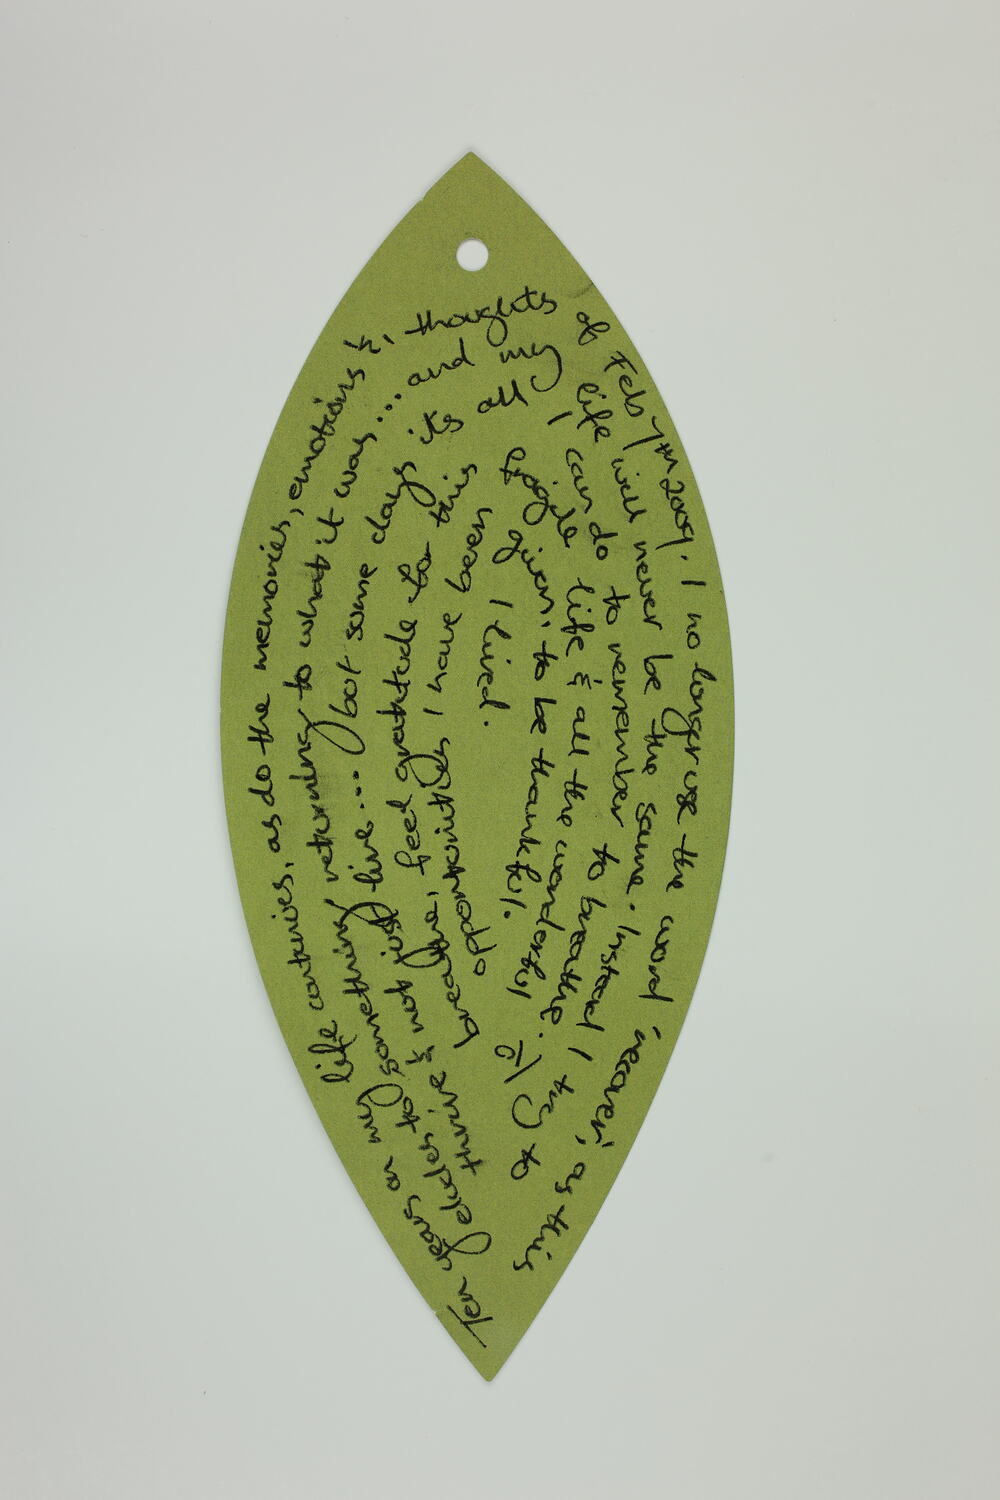 Ten years on my life continues, as do the memories, emotions &, thoughts
of Feb 7th 2009. I no longer use the word 'recover', as this
eludes to something, returning to what it was... and my
life will never be the same. Instead I try to
thrive & not just live... but some days its all
I can do to remember to breathe. I try to
breathe, feel gratitude for this
fragile life & all the wonderful
opportunities I have been
given, to be thankful.
I lived.